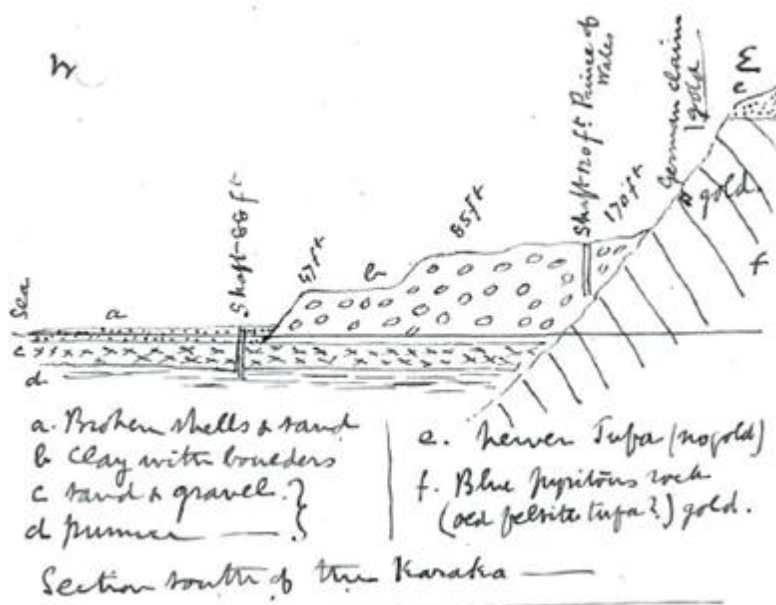 W
E
Sea
a
c
d
Shaft 88 ft
57 ft
b
85 ft
Shaft 120 ft Prince of
Wales
170 ft
German claim
gold
gold.
e
f
a. Broken shells & sand
b Clay with boulders
c sand & gravel.
d pumice
e. newer Tufa (no gold)
f. Blue pyritous rock
(old felsite tufa?) gold.
Section south of the Karaka